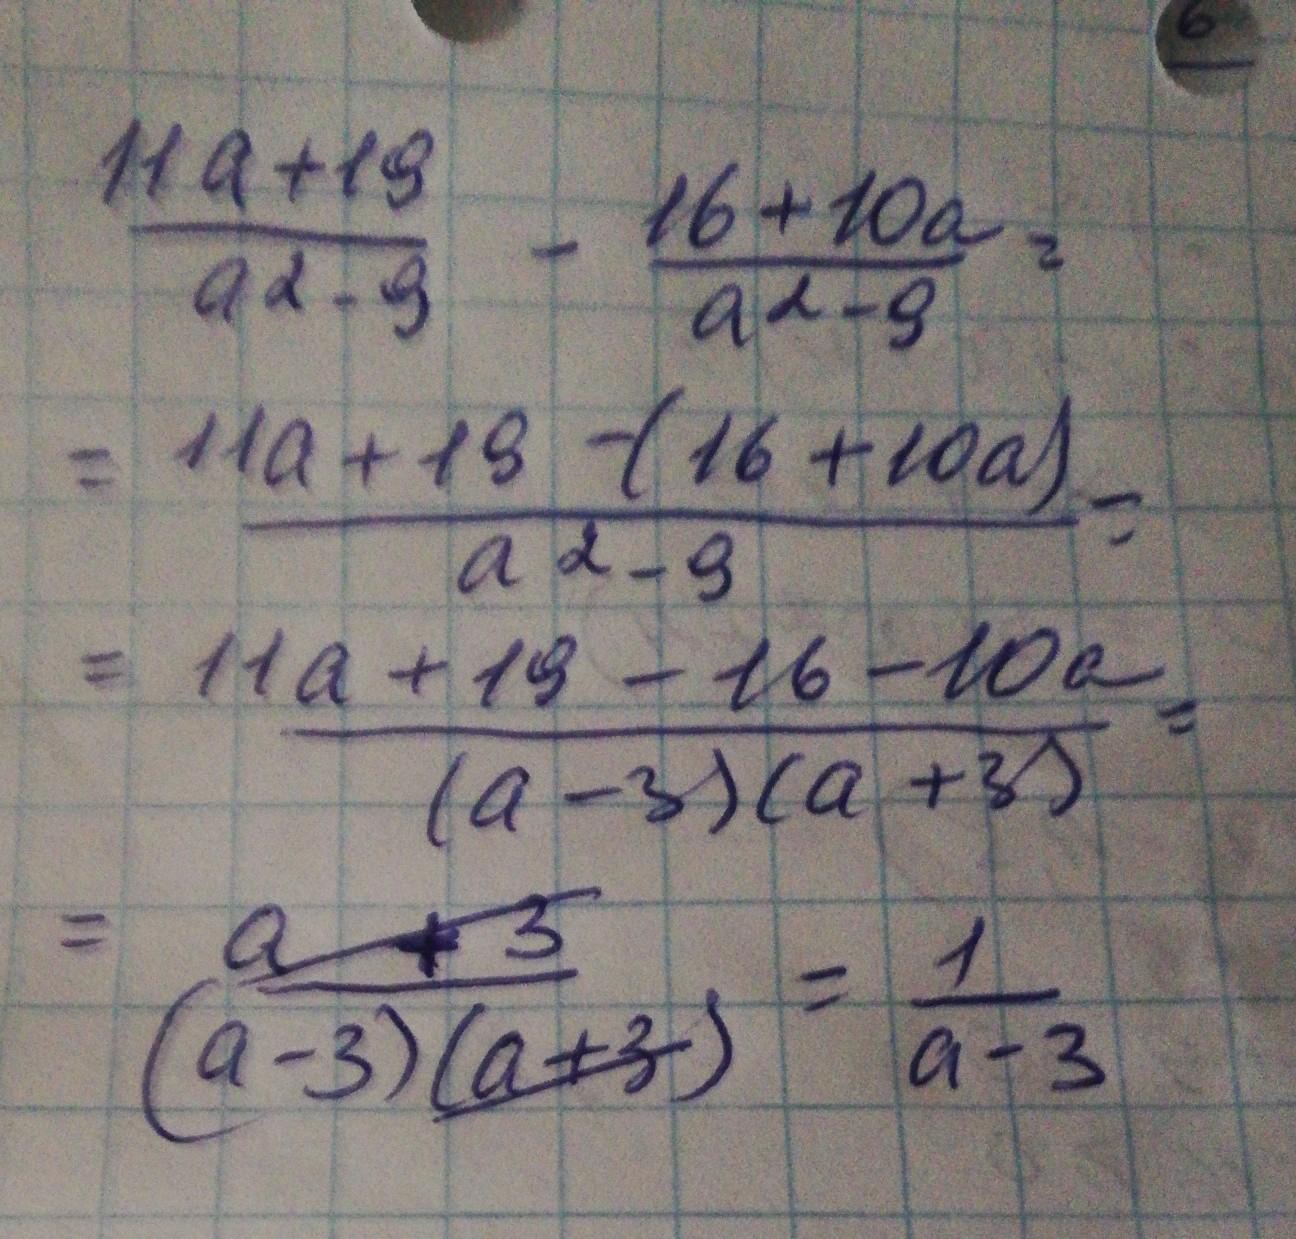 6
11a+19 / a2-9 - 16+10a / a2-9 =
= 11a+19-(16+10a) / a2-9 =
= 11a+19-16-10a / (a-3)(a+3) =
= a+3 / (a-3)(a+3) = 1 / a-3